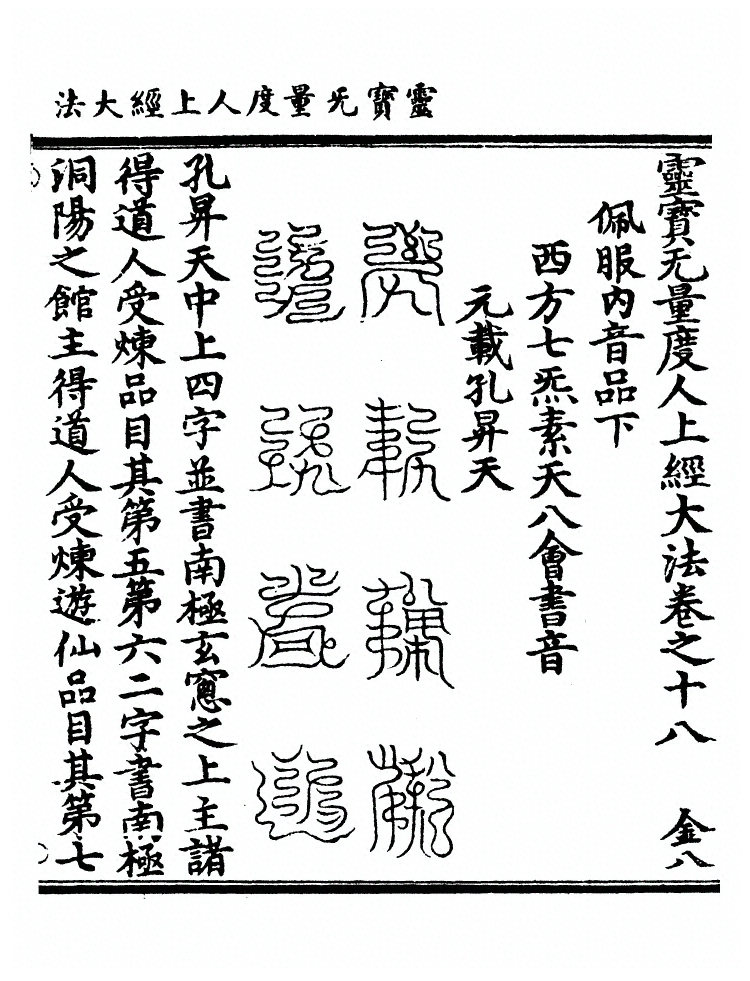 靈寶无量度人上經大法
靈寶无量度人上經大法卷之十八 金八
佩服內音品下
西方七炁素天八會書音
元載孔昇天
孔昇天中上四字並書南極玄窻之上主諸
得道人受煉品目其第五第六二字書南極
洞陽之館主得道人受煉遊仙品目其第七